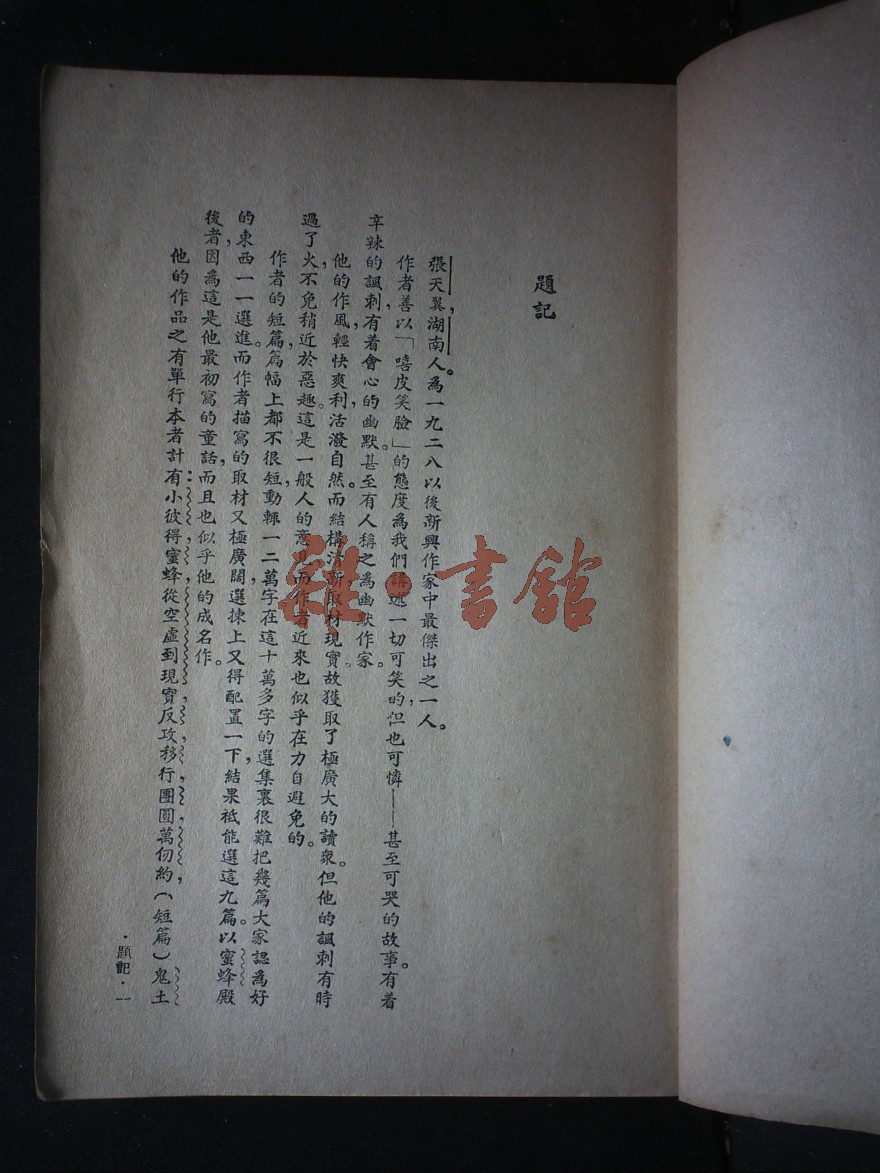 題記
張天翼，湖南人。為一九二八以後新興作家中最傑出之一人。
作者善以「嘻皮笑臉」的態度為我們講述一切可笑的，但也可憐——甚至可哭的故事。有着
辛辣的諷刺，有着會心的幽默。甚至有人稱之為幽默作家。
他的作風，輕快爽利，活潑自然。而結構清新，取材現實，故獲取了極廣大的讀衆。但他的諷刺有時
過了火，不免稍近於惡趣。這是一般人的意見，而作者近來也似乎在力自避免的。
作者的短篇，篇幅上都不很短，動輒一二萬字，在這十萬多字的選集裏很難把幾篇大家認為好
的東西一一選進。而作者描寫的取材又極廣闊，選揀上又得配置一下，結果祇能選這九篇。以蜜蜂殿
後者，因為這是他最初寫的童話，而且也似乎他的成名作。
他的作品之有單行本者計有：小彼得，蜜蜂，從空虛到現實，反攻，移行，團圓，萬仞約，（短篇）鬼土
·題記·一
雜·書館